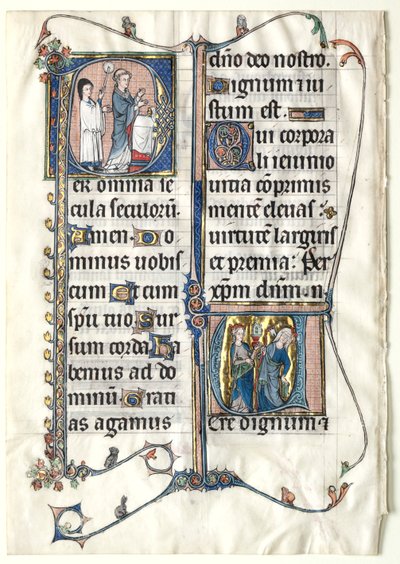 Per omnia se
cula seculorū.
Amen. Do
minus uobis
cum Et cum
sp̄u tuo Sur
sum corda Ha
bemus ad do
minū Grati
as agamus
dn̄o deo nostro.
Dignum ⁊ iu
stum est.
Qui corpora
li ieiunio
uitia cōprimis
mentē eleuas:
uirtutē largiris
et premia: Per
xp̄m dn̄m n.
Uere dignum ⁊